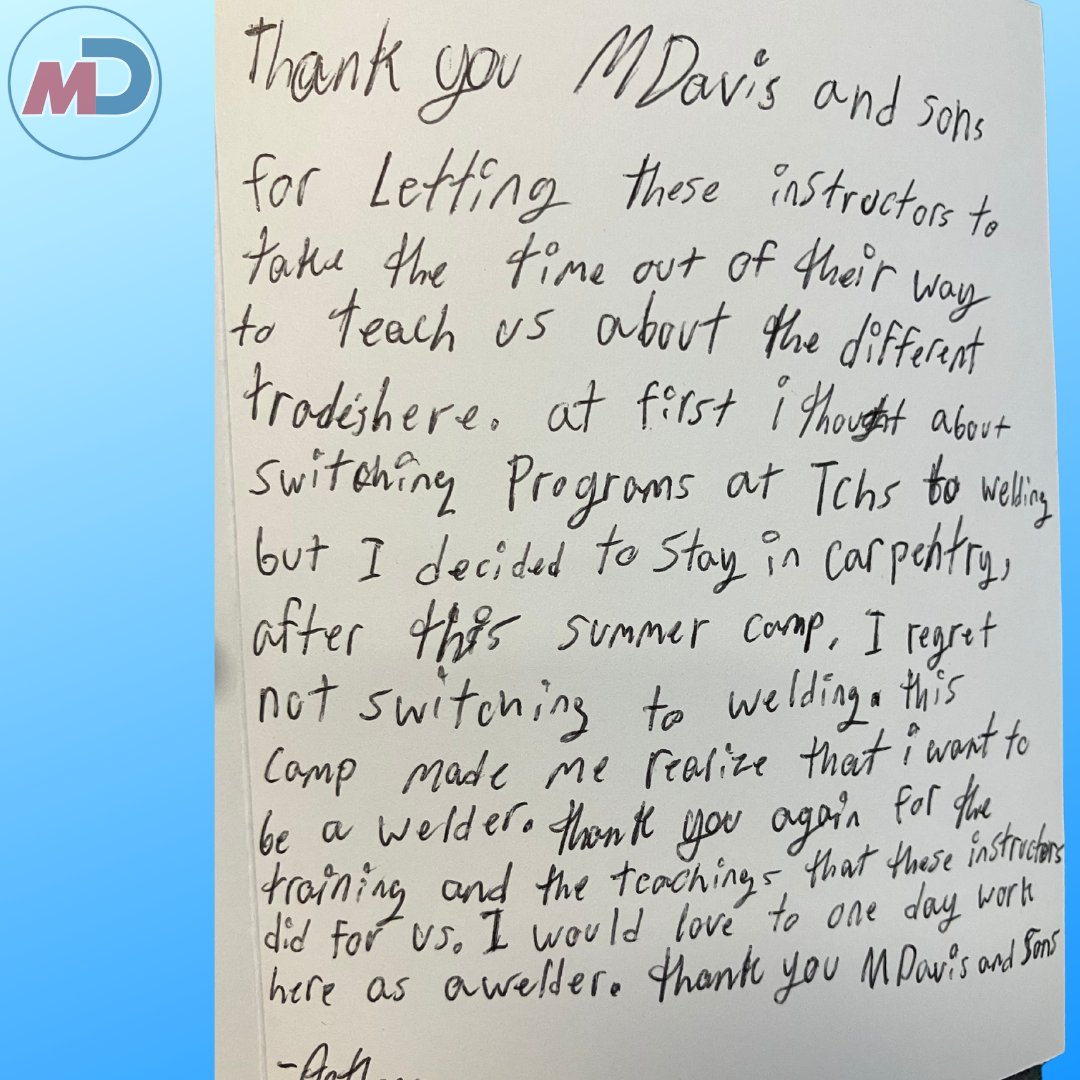 MD
Thank you MDavis and sons
for Letting these instructors to
take the time out of their way
to teach us about the different
trades here. at first i thought about
switching Programs at Tchs to welding
but I decided to Stay in carpentry,
after this summer camp, I regret
not switching to welding. this
Camp made me realize that i want to
be a welder. thank you again for the
training and the teachings that these instructors
did for us. I would love to one day work
here as a welder. thank you MDavis and Sons